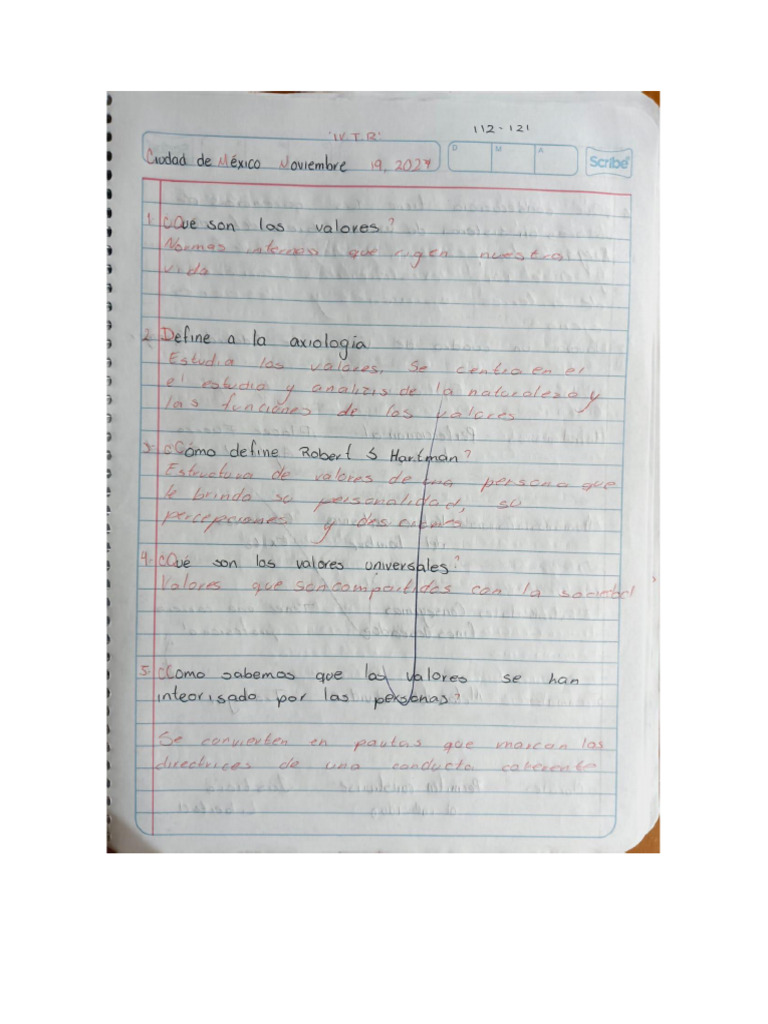 'I.V.T.R'
112-121
D M A
Scribe
Ciudad de México Noviembre 19, 2024
1. ¿Qué son los valores?
Normas internas que rigen nuestra
vida
2. Define a la axiología
Estudia los valores, se centra en el
el estudio y analizis de la naturaleza y
las funciones de los valores
3. ¿Cómo define Robert S Hartman?
Estructura de valores de una persona que
le brinda su personalidad, su
percepciones y decisiones
4. ¿Qué son los valores universales?
Valores que son compartidos con la sociedad
5. ¿Como sabemos que los valores se han
inteorisado por las personas?
Se convierten en pautas que marcan las
directrices de una conducta coherente